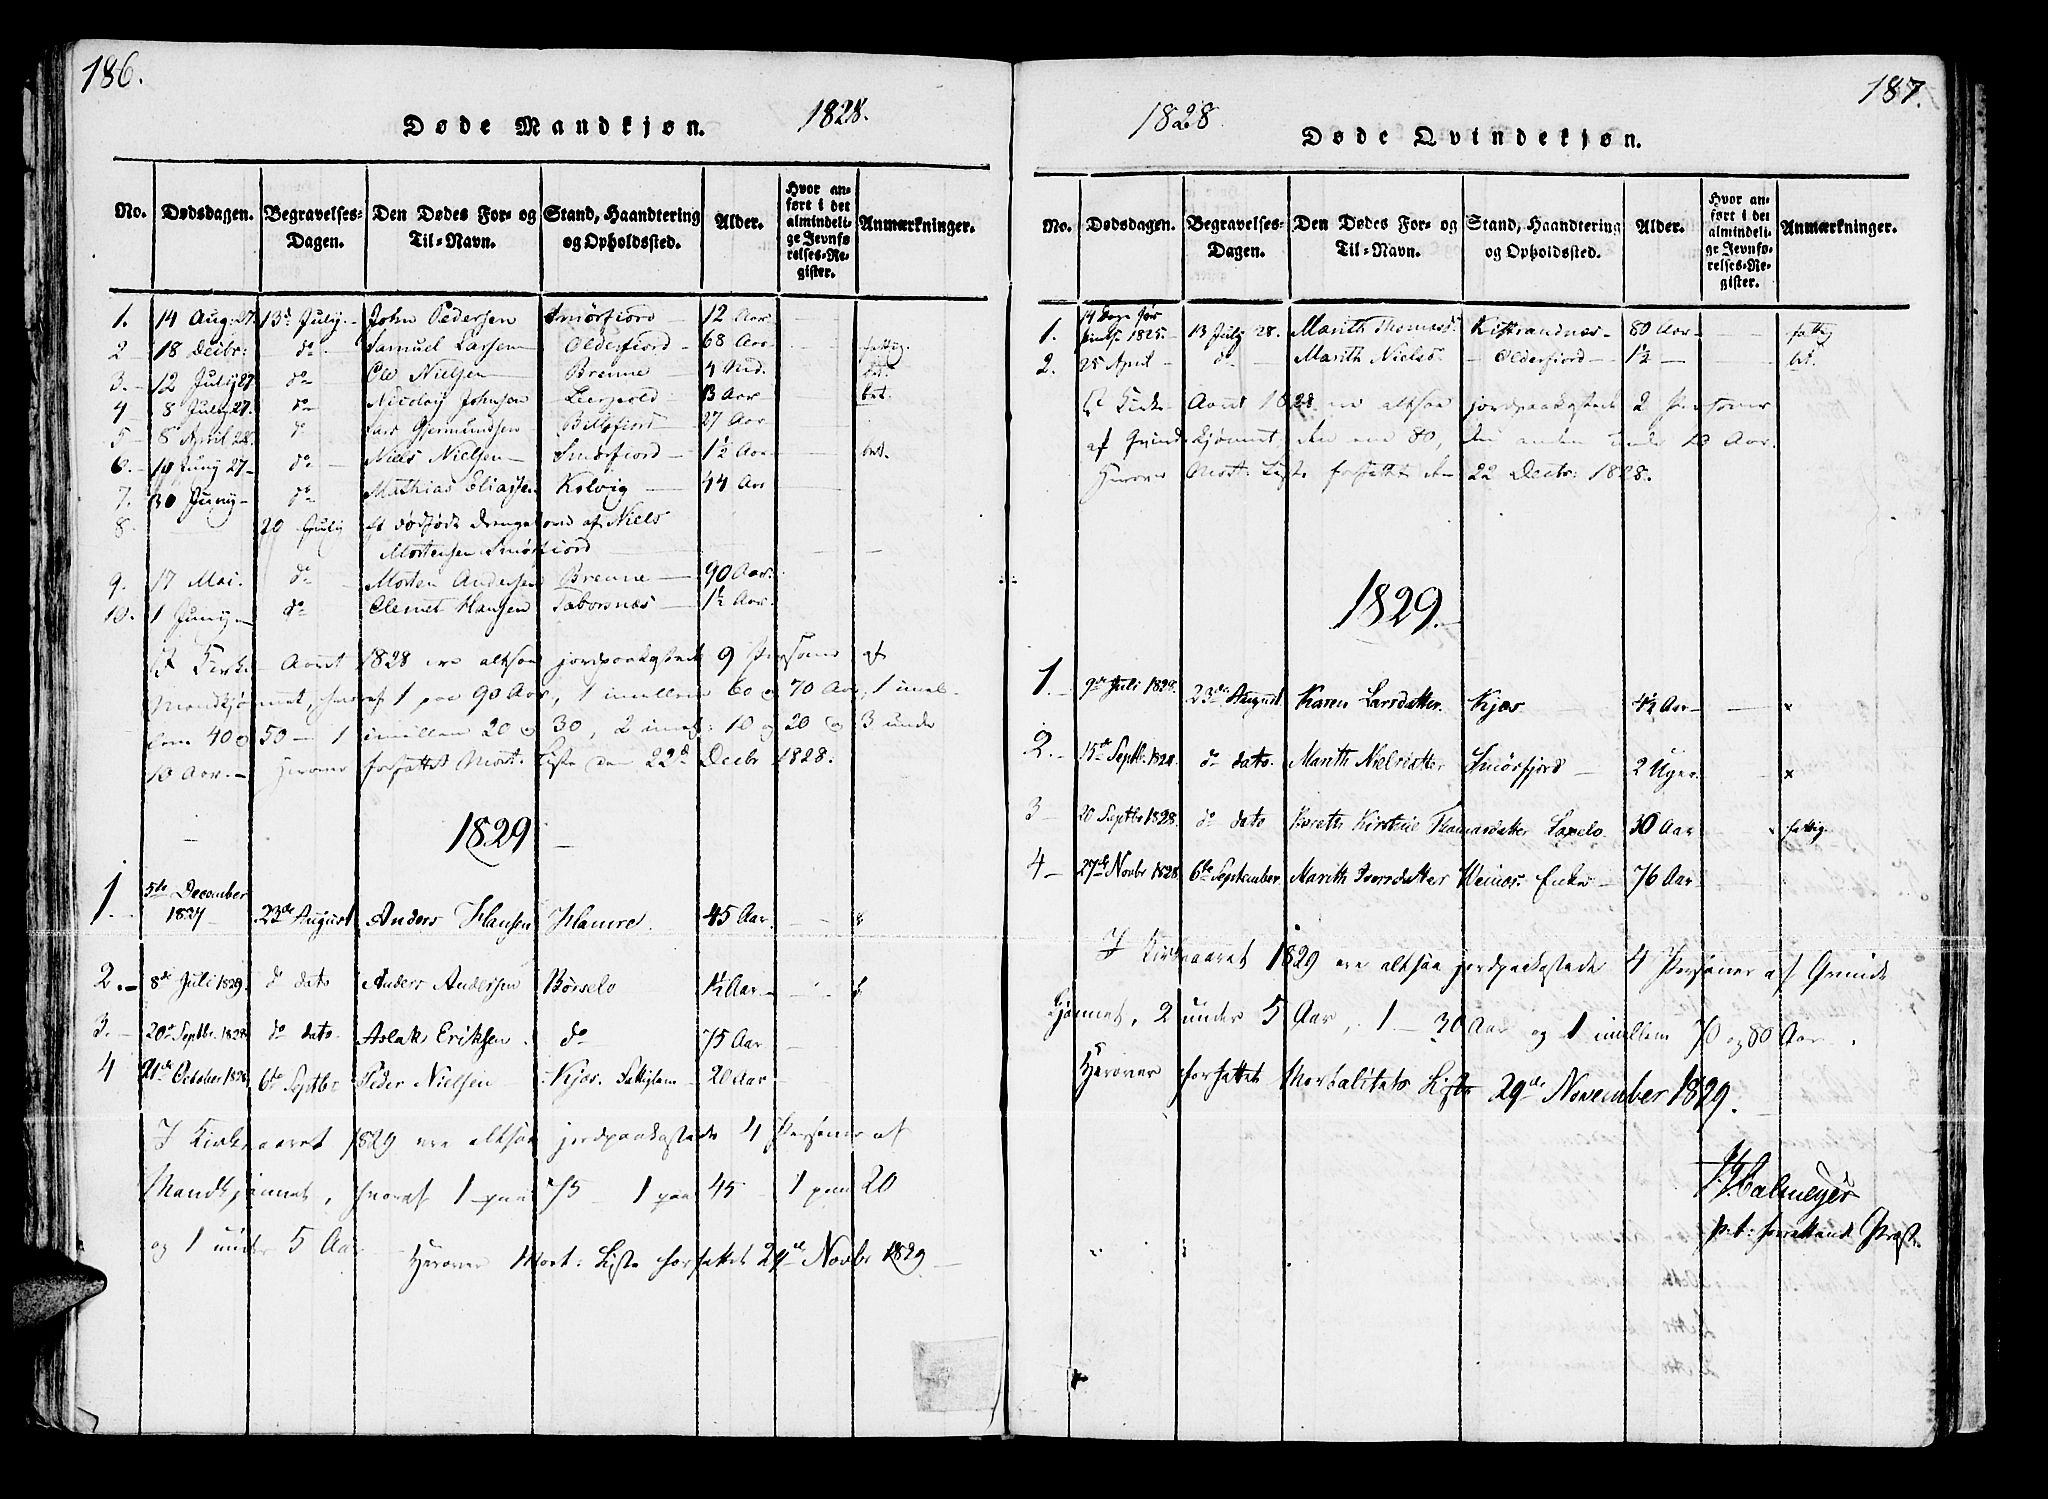 186.
Døde Mandkjøn. 1828.
No. Dødsdagen. Begravelses-Dagen. Den Dødes For- og Til-Navn. Stand, Haandtering og Opholdssted. Alder. Hvor anført i det almindelige Jevnførelses-Register. Anmærkninger.
1. 14 Aug: 27. 13de July John Pedersen Smörfiord 12 Aar
2 18 Decbr: do Samuel Larsen Olderfiord 68 Aar fattig.
3. 12 July 27 do Ole Nielsen Brenne 4 Md.
4 8 July 27. do Nicolay Johnsen 13 Aar
5 8 April 28. do Lars Gjermundsen Billefiord 27 Aar
6. 14 Juny 27 do Niels Nielsen Smörfiord 1½ Aar
7. 30 Juny do Mathias Eliassen Kolvig 44 Aar
8. 20 July Et dödfödt Drengebarn af Niels
Mortensen Smörfiord
9. 17 Mai. do Morten Andersen Brenne 90 Aar.
10. 1 Juny do Clemet Hansen Taborsnæs 1½ Aar.
I Kirke Aaret 1828 ere altsaa jordpaakastede 9 Personer af
Mandkjönnet, hvoraf 1 paa 90 Aar, 1 imellem 60 og 70 Aar, 1 imel-
lem 40 og 50 – 1 imellem 20 og 30, 2 imel: 10 og 20 og 3 under
10 Aar. – Herover forfattet Mort: Liste den 22d Decbr 1828.
1829
1. 5te December 1827 23de August Anders Hansen Hamre. 45 Aar
2. 8de Juli 1829. do dato Anders Andersen Börselv 1½ Aar
3. 20de Septbr. 1828 do dato. Aslak Eriksen do 75 Aar
4 21de October 1828 6te Septbr Peder Nielsen Kjæs. Fattiglem 20 Aar
I Kirkeaaret 1829 ere altsaa jordpaakastede 4 Personer af
Mandkjönnet, hvoraf 1 paa 75 – 1 paa 45 – 1 paa 20
og 1 under 5 Aar Herover Mort: Liste forfattet 29de Novbr 1829
187.
1828. Døde Qvindekjøn.
No. Dødsdagen. Begravelses-Dagen. Den Dødes For- og Til-Navn. Stand, Haandtering og Opholdssted. Alder. Hvor anført i det almindelige Jevnførelses-Register. Anmærkninger.
1. 14 Dage før 1825. 13 July 28. Marith Thomasd. Kistrandnæs 80 Aar fattig
2. 25 April do Marith Nielsd. Olderfiord 1½
I Kirke Aaret 1828 ere altsaa jordpaakastede 2 Personer
af Qvindekjönnet den ene 80, den anden under 10 Aar.
Herover Mort: Liste forfattet den 22 Decbr: 1828.
1829.
1. 9de Juli 1828. 23de August Karen Larsdatter. Kjæs 4½ Aar
2. 15de Septbr. 1828. do dato. Marith Nielsdatter Smörfjord 2 Uger.
3 20 Septbr 1828. do dato Kirstie Thomasdatter 30 Aar fattig.
4 27de Novbr 1828 6te September Marith Iversdatter Enke 76 Aar
I Kirkeaaret 1829 ere altsaa jordpaakastede 4 Personer af Qvinde
kjönnet, 2 under 5 Aar, 1 – 30 Aar og 1 imellem 70 og 80 Aar.
Herover forfattet Mortalitets Liste 29de November 1829.
Halmeyer
p. t. foresttand. Præst